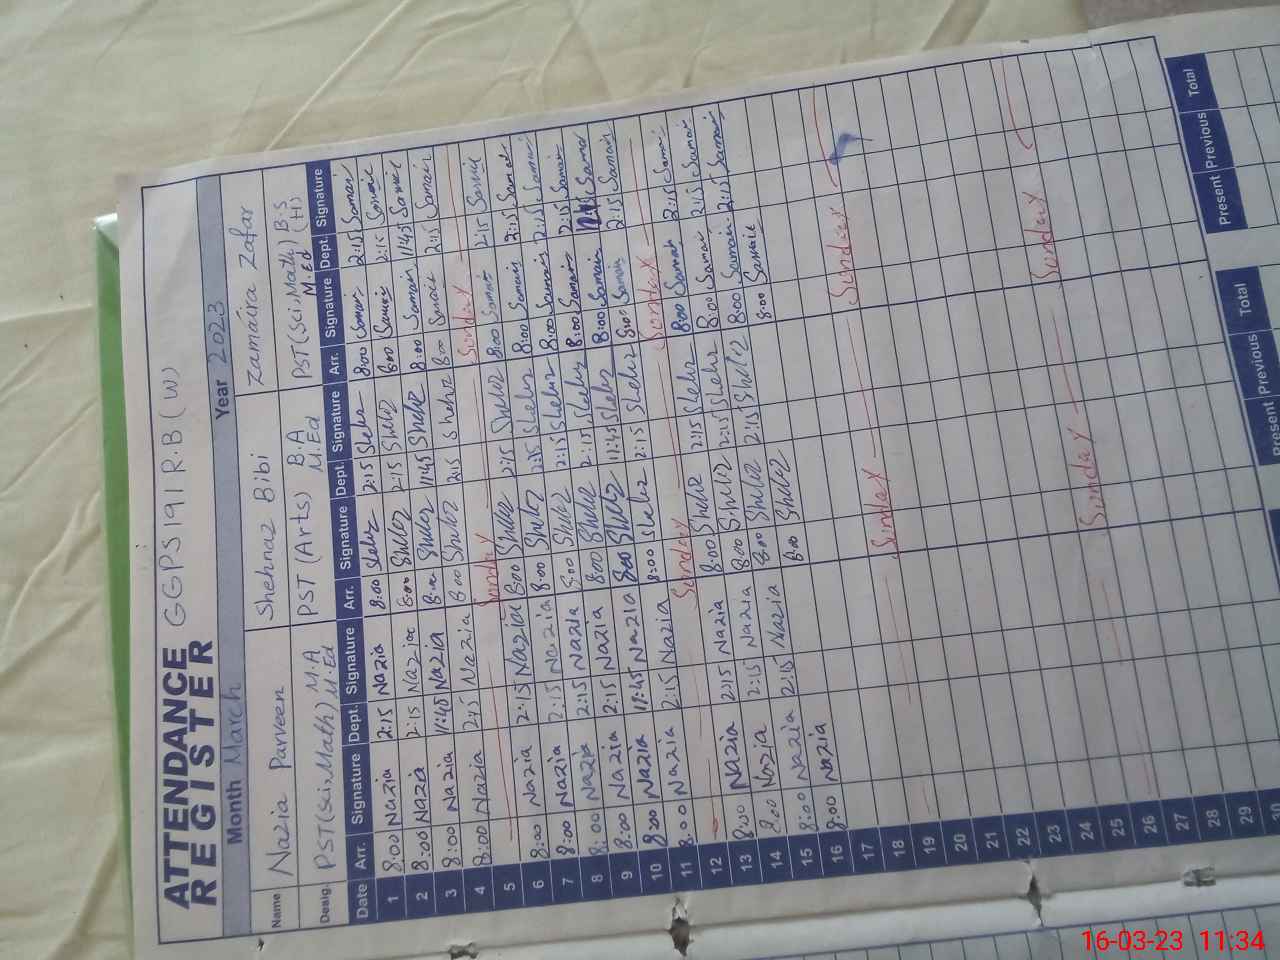 ATTENDANCE REGISTER GGPS 191 R.B (W)
Month March Year 2023
Name Nazia Parveen Shehnaz Bibi Zamaira Zafar
Desig. PST (Sci.Math) M.A M.Ed PST (Arts) B.A M.Ed PST (Sci.Math) B.S (H) M.Ed
Date Arr. Signature Dept. Signature Arr. Signature Dept. Signature Arr. Signature Dept. Signature
1 8:00 Nazia 2:15 Nazia 8:00 Shehz 2:15 Shehz 8:00 Samair 2:15 Samair
2 8:00 Nazia 2:15 Nazia 8:00 Shehz 2:15 Shehz 8:00 Samair 2:15 Samair
3 8:00 Nazia 11:45 Nazia 8:00 Shehz 11:45 Shehz 8:00 Samair 11:45 Samair
4 8:00 Nazia 2:15 Nazia 8:00 Shehz 2:15 Shehz 8:00 Samair 2:15 Samair
5 Sunday Sunday
6 8:00 Nazia 2:15 Nazia 8:00 Shehz 2:15 Shehz 8:00 Samair 2:15 Samair
7 8:00 Nazia 2:15 Nazia 8:00 Shehz 2:15 Shehz 8:00 Samair 2:15 Samair
8 8:00 Nazia 2:15 Nazia 8:00 Shehz 2:15 Shehz 8:00 Samair 2:15 Samair
9 8:00 Nazia 2:15 Nazia 8:00 Shehz 2:15 Shehz 8:00 Samair 2:15 Samair
10 8:00 Nazia 11:45 Nazia 8:00 Shehz 11:45 Shehz 8:00 Samair Samair
11 8:00 Nazia 2:15 Nazia 8:00 Shehz 2:15 Shehz 8:00 Samair 2:15 Samair
12 Sunday Sunday
13 8:00 Nazia 2:15 Nazia 8:00 Shehz 2:15 Shehz 8:00 Samair 2:15 Samair
14 8:00 Nazia 2:15 Nazia 8:00 Shehz 2:15 Shehz 8:00 Samair 2:15 Samair
15 8:00 Nazia 2:15 Nazia 8:00 Shehz 2:15 Shehz 8:00 Samair 2:15 Samair
16 8:00 Nazia 8:00 Shehz 8:00 Samair
17
18
19 Sunday Sunday
20
21
22
23
24
25
26 Sunday Sunday
27
28
29
30
Present Previous Total Present Previous Total
16-03-23 11:34